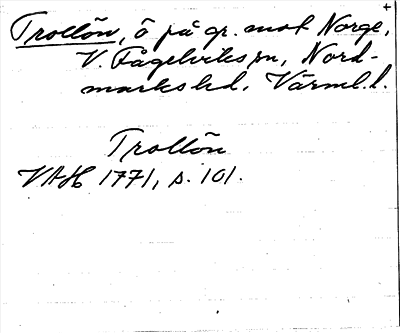 Trollön, ö på gr. mot Norge,
V. Fågelviks sn, Nord-
marks hd, Värml. l.
Trollön
VAH 1771, s. 101.